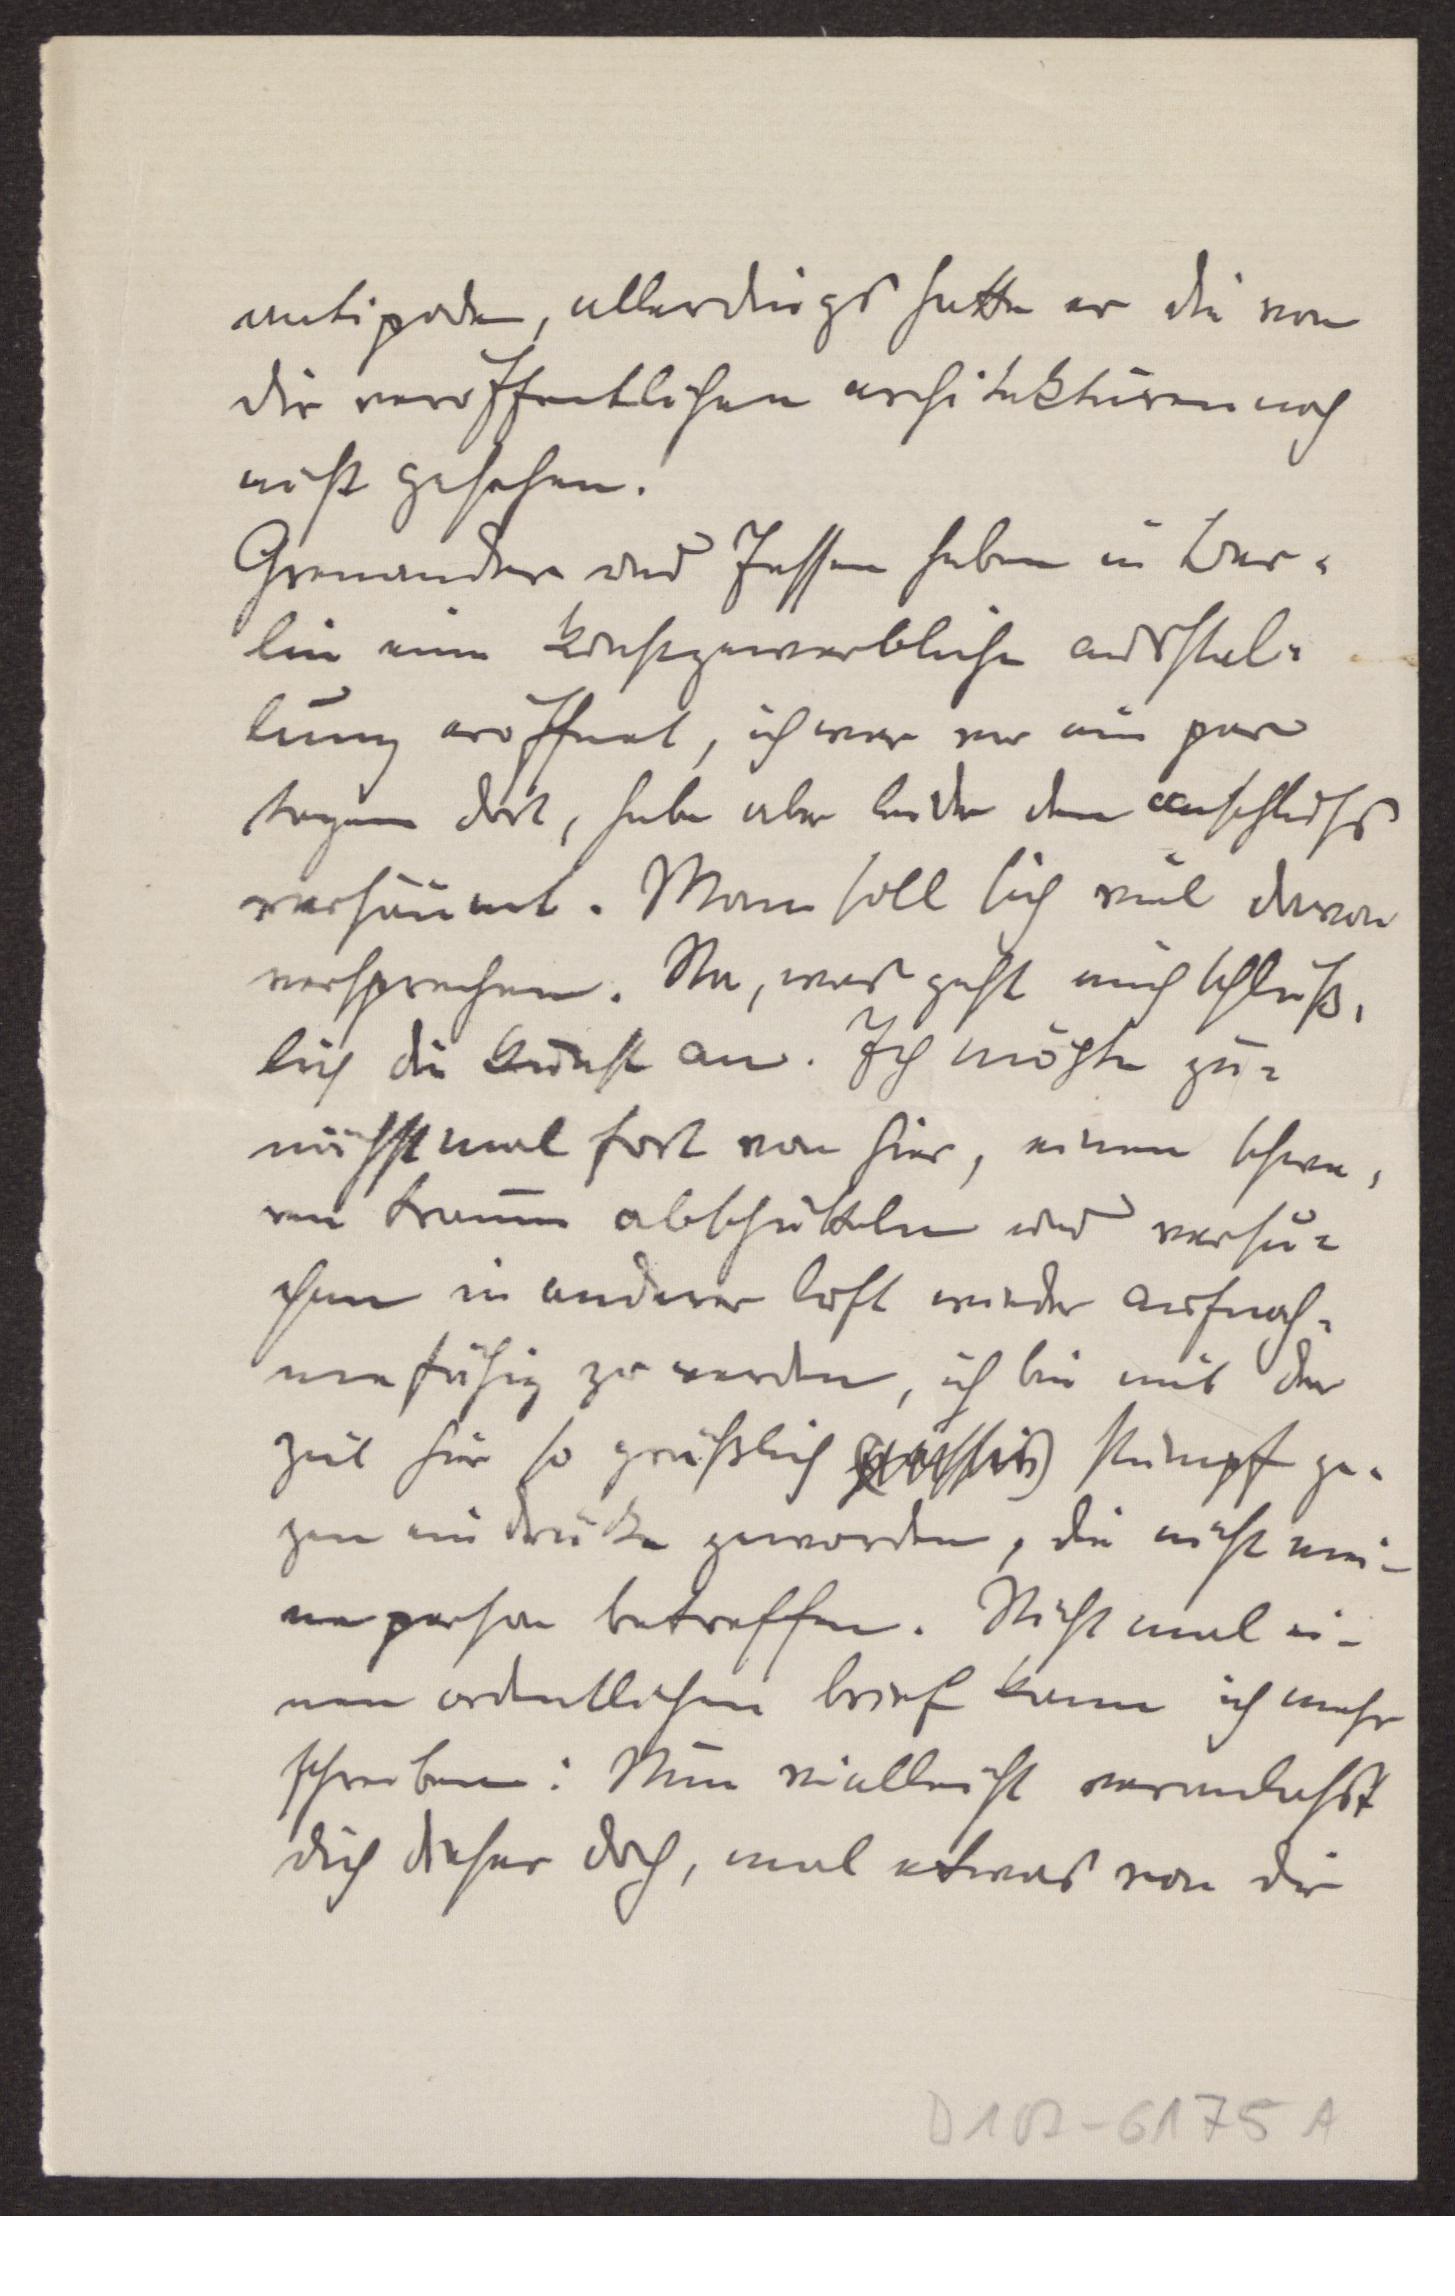 antipoden, allerdings hatte er die von
dir veröffentlichen architekturen noch
nicht gesehen.
Grenander und Jessen haben in Ber-
lin eine kunstgewerbliche ausstel-
lung eröffnet, ich war vor ein par
tagen dort, habe aber leider den anschluss
versäumt. Man soll sich viel davon
versprechen. Na, was geht mich schließ-
lich die kunst an. Ich möchte zu-
nächst mal fort von hier, einen schwe-
ren traum abschütteln und versu-
chen in anderer luft wieder aufnah-
mefähig zu werden, ich bin mit der
zeit hier so gräßlich stumpf ge-
gen eindrücke geworden, die nicht mei-
ne person betreffen. Nicht mal ei-
nen ordentlichen brief kann ich mehr
schreiben: Nun vielleicht veranlasst
dich dieser doch, mal etwas von dir
D102-6175 A